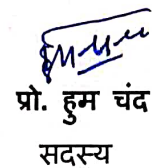 प्रो. हुम चंद
सदस्य